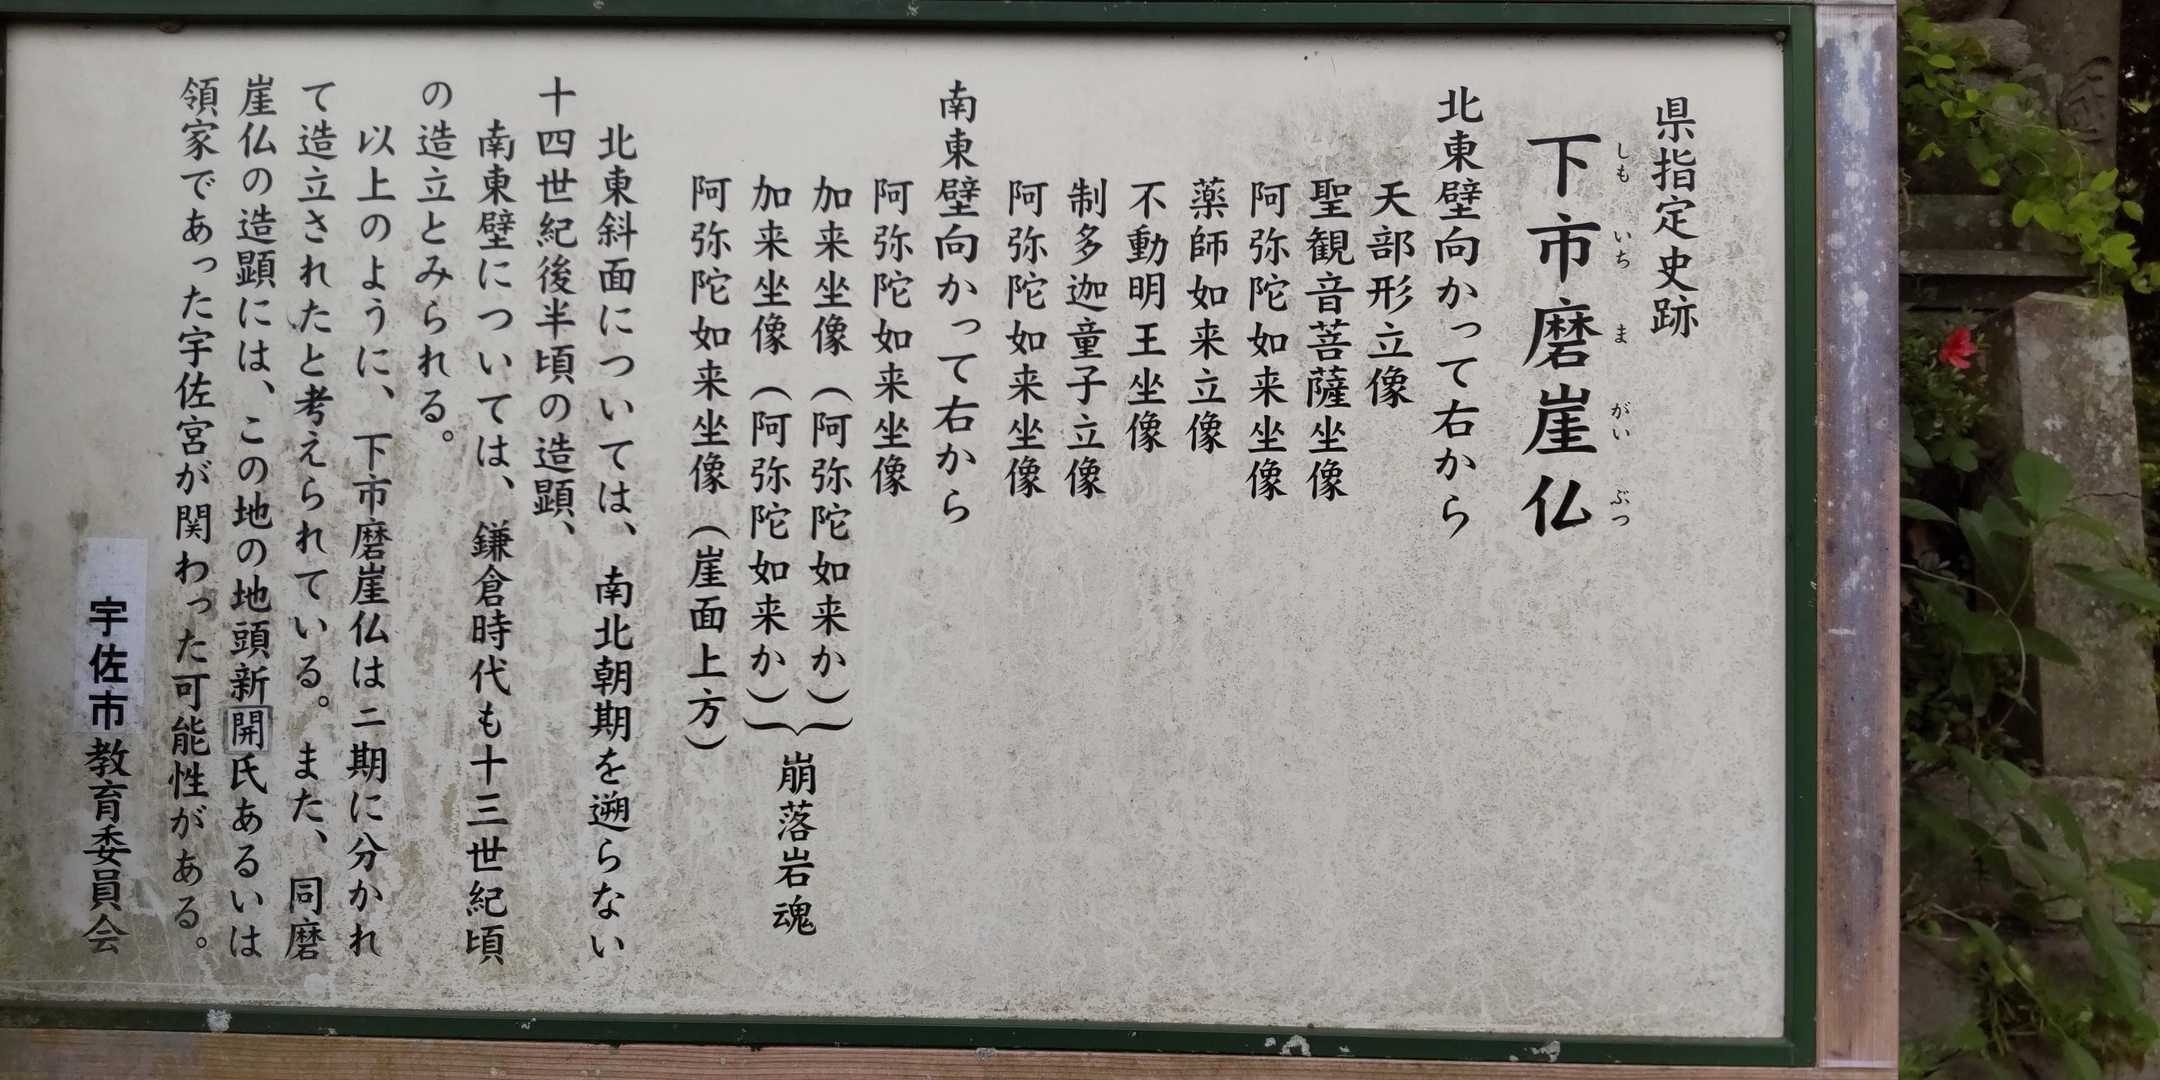 県指定史跡
下市磨崖仏
しもいちまがいぶつ
北東壁向かって右から
天部形立像
聖観音菩薩坐像
阿弥陀如来坐像
薬師如来立像
不動明王坐像
制多迦童子立像
阿弥陀如来坐像
南東壁向かって右から
阿弥陀如来坐像
加来坐像（阿弥陀如来か）
加来坐像（阿弥陀如来か）
崩落岩魂
阿弥陀如来坐像（崖面上方）
北東斜面については、南北朝期を遡らない
十四世紀後半頃の造顕、
南東壁については、鎌倉時代も十三世紀頃
の造立とみられる。
以上のように、下市磨崖仏は二期に分かれ
て造立されたと考えられている。また、同磨
崖仏の造顕には、この地の地頭新開氏あるいは
領家であった宇佐宮が関わった可能性がある。
宇佐市教育委員会